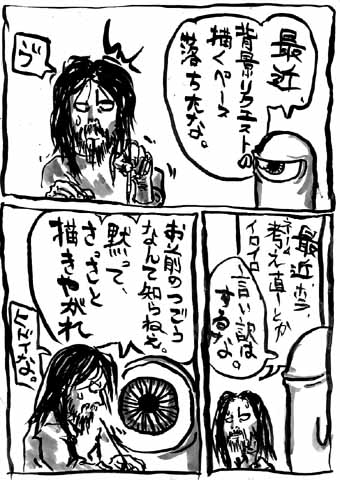 最近、
背景リクエストの
描くペース
落ちたな。
ヴ
最近、ホラ、
ネーム
考え直しとか
イロイロ
言い訳は
するな。
お前のつごう
なんて知らねぇ。
黙って、
さっさと
描きやがれ
ヒドイな。